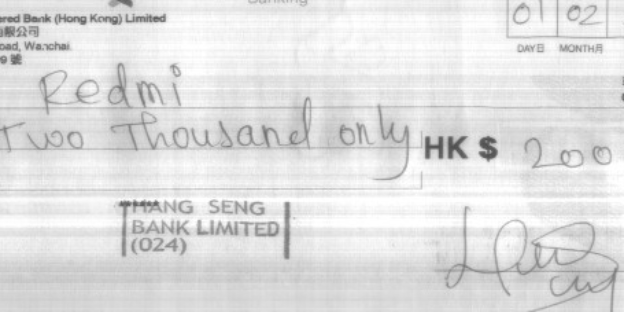 Banking
ered Bank (Hong Kong) Limited
限公司
oad, Wanchai.
9 號
01 02
DAY日 MONTH月
Redmi
Two Thousand only HK $ 200
HANG SENG
BANK LIMITED
(024)